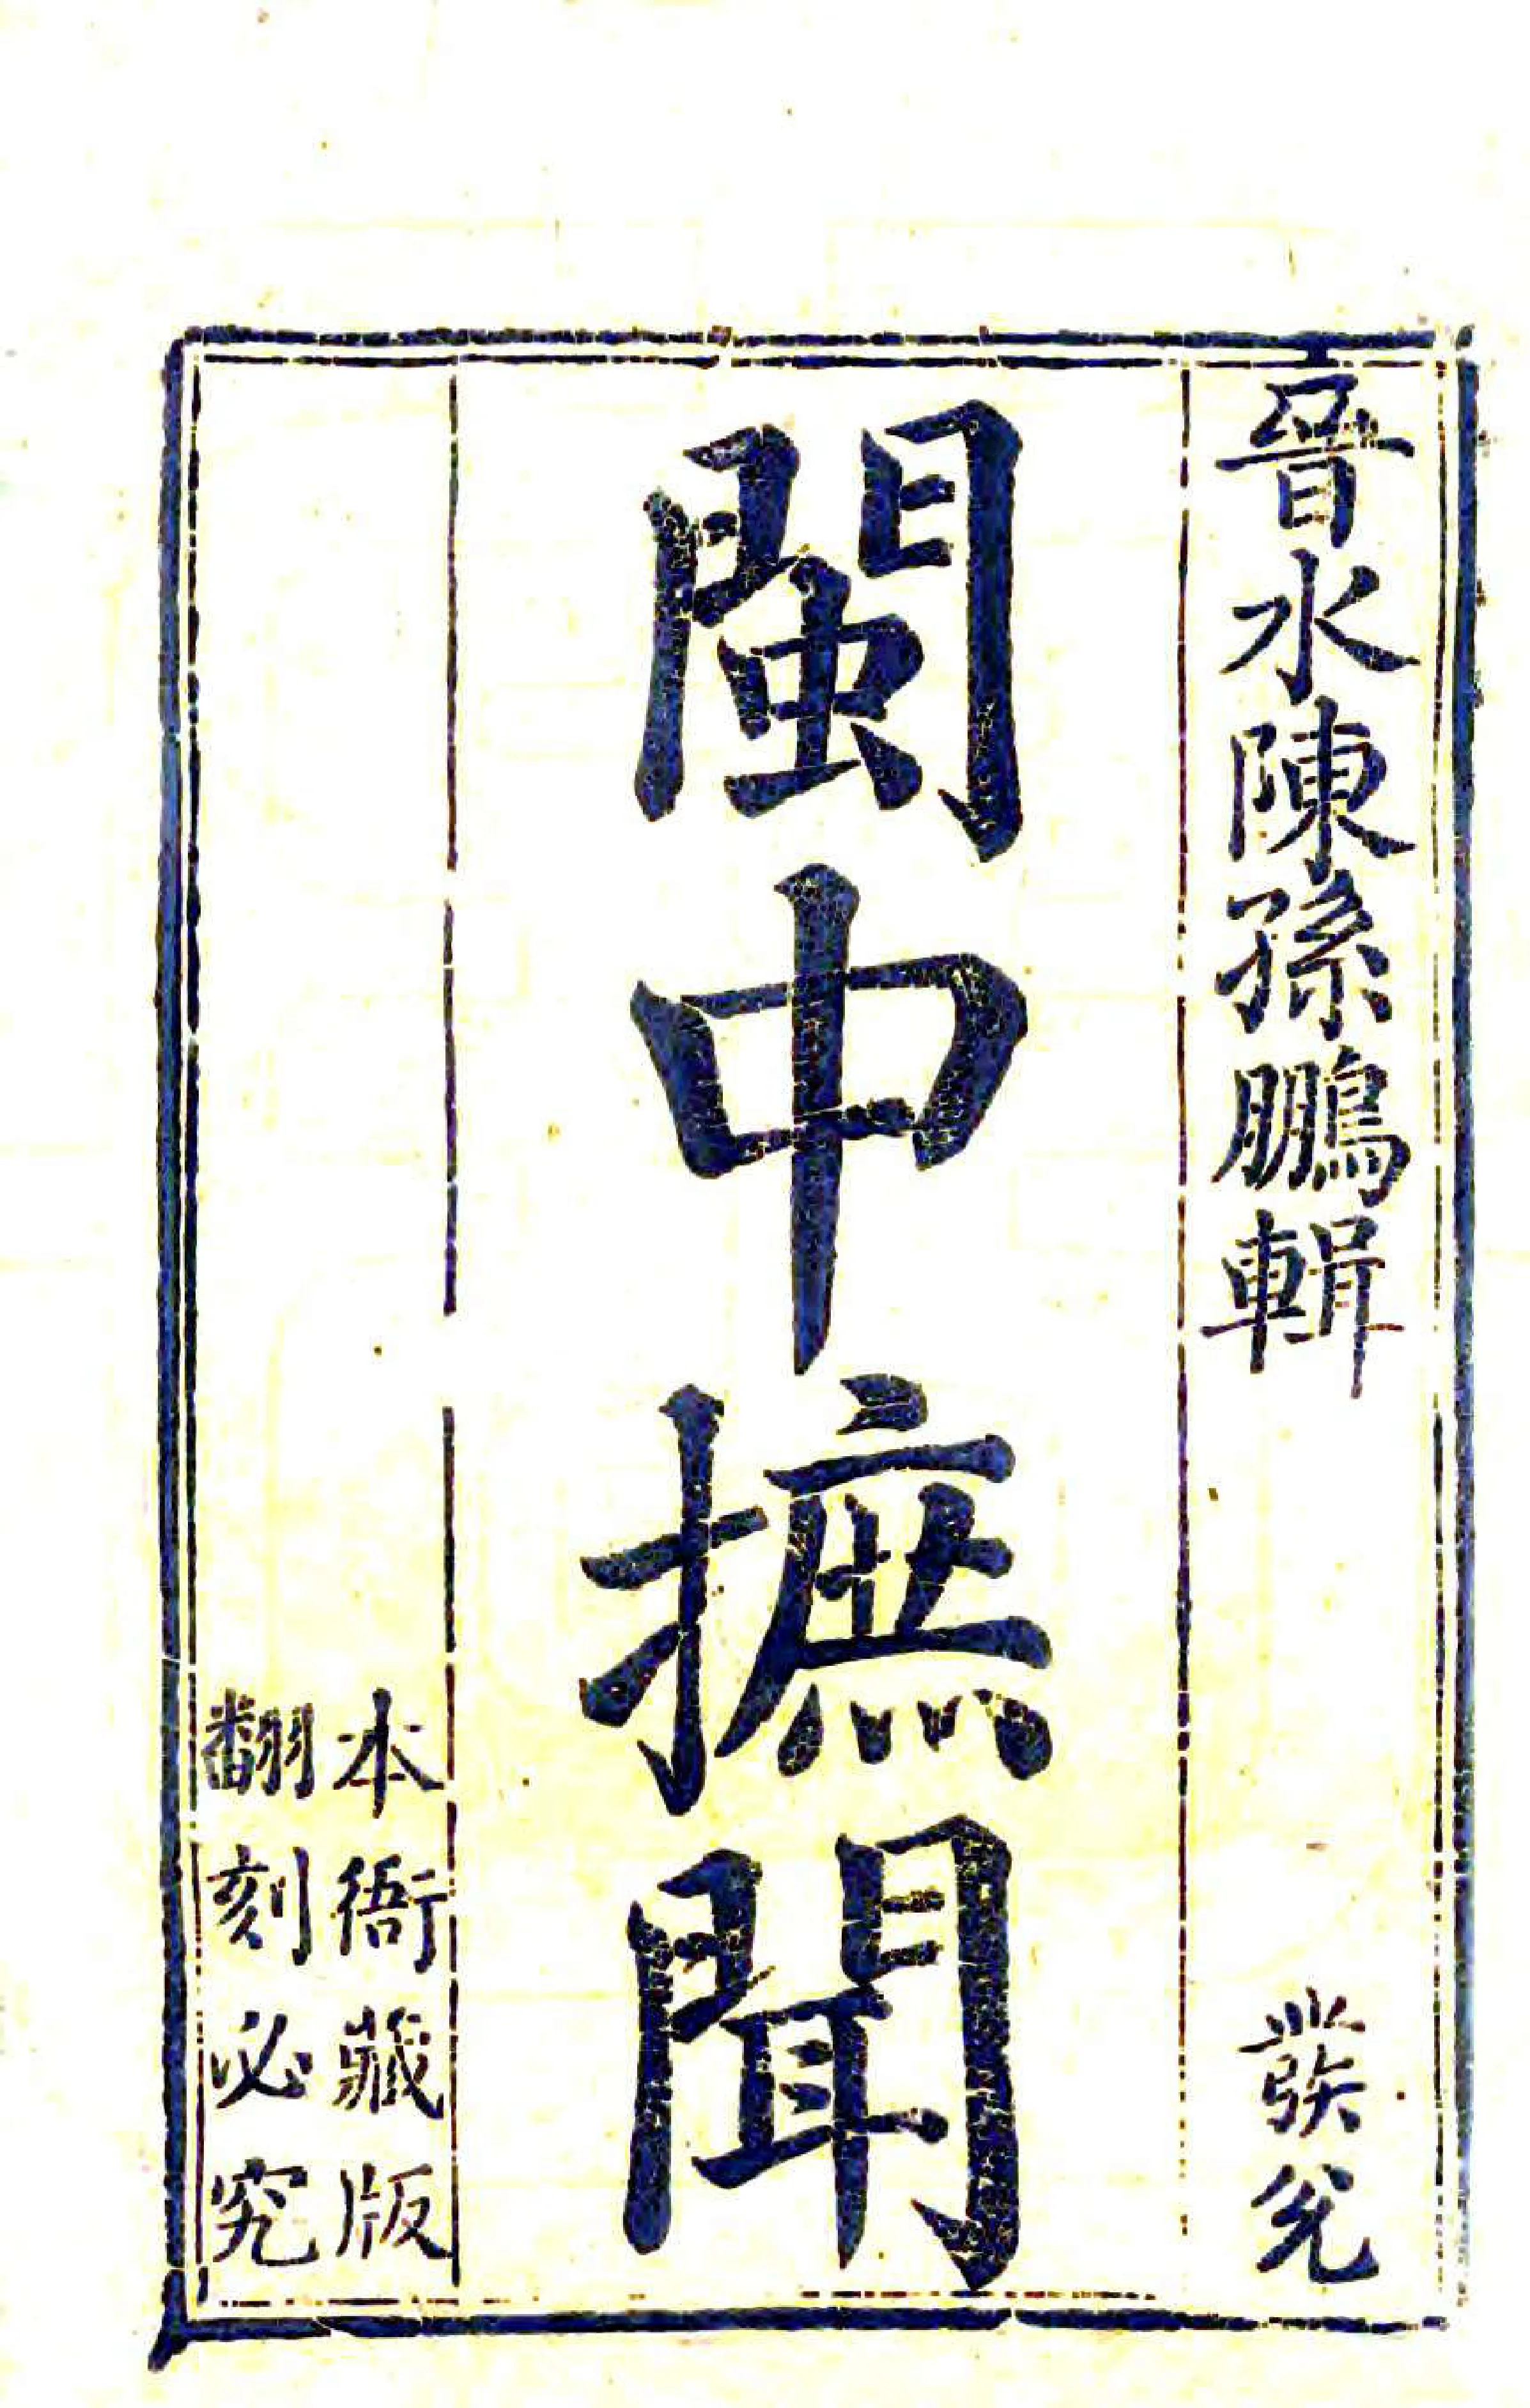 晉水陳孫鵬輯
發兌
閩中摭聞
本衙藏版
翻刻必究